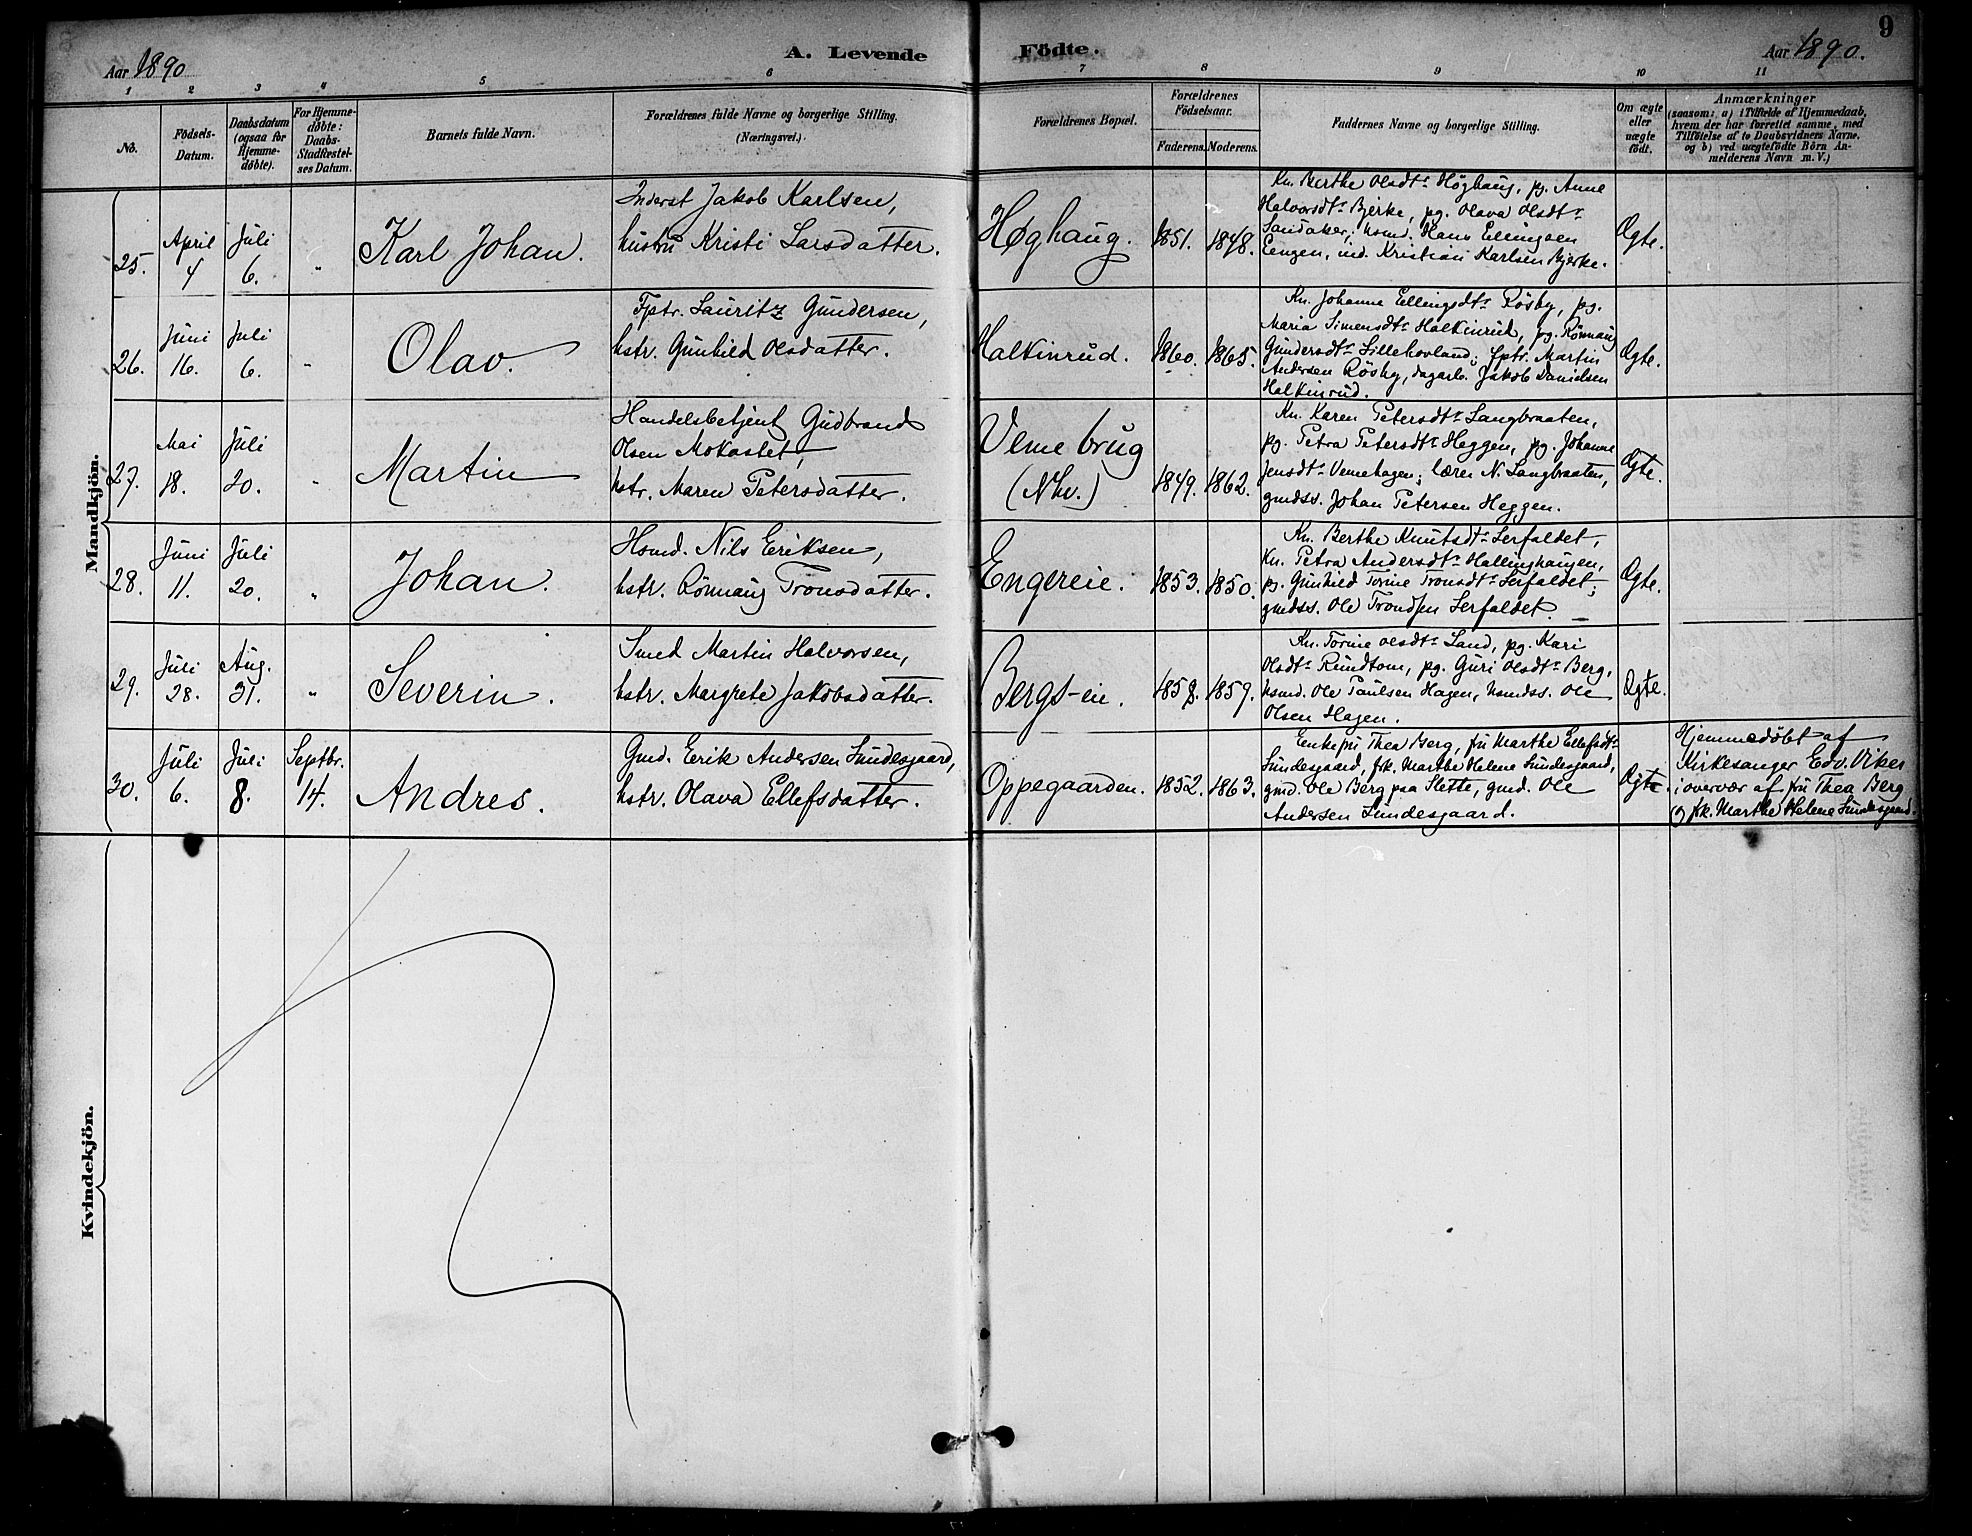 9
Aar 1890
A. Levende Födte.
Aar 1890.
1 2 3 4 5 6 7 8 9 10 11
No.
Födsels-
Datum.
Daabsdatum
(ogsaa for
Hjemme-
døbte).
For Hjemme-
døbte:
Daabs-
Stadfæstel-
ses Datum.
Barnets fulde Navn.
Forældrenes fulde Navne og borgerlige Stilling.
(Næringsvei.)
Forældrenes Bopæl.
Forældrenes
Födselsaar.
Faderens. Moderens.
Faddernes Navne og borgerlige Stilling.
Om ægte
eller
uægte
født.
Anmærkninger
(saasom: a) i Tilfælde af Hjemmedaab,
hvem der har forrettet samme, med
Tilföielse af to Daabsvidners Navne,
og b) ved uægtefödte Börn An-
melderens Navn m. V.)
Mandkjön.
25.
April
4
Juli
6.
"
Karl Johan.
Inderst Jakob Karlsen,
hustru Kristi Larsdatter.
Høghaug.
1851. 1848.
Kn. Berthe Olsdtr Høghaug, pg. Anne
Halvorsdtr Bjerke, pg. Olava Olsdtr
Sandaker; hsmd. Hans Ellingsen
Eengen, ind. Kristian Karlsen Bjerke.
Ægte.
26.
Juni
16.
Juli
6.
"
Olav.
Fptr. Lauritz Gundersen,
hstr. Gunhild Olsdatter.
Halkinrud.
1860. 1865.
Kn. Johanne Ellingsdtr Rösby, pg.
Maria Simensdtr Halkinrud, pg. Rönnaug
Gundersdtr Lillehovland; fptr. Martin
Andersen Rösby, dagarb. Jakob Danielsen
Halkinrud.
Ægte.
27.
Mai
18.
Juli
20.
"
Martin
Handelsbetjent Gudbrand
Olsen Mokastet,
hstr. Maren Petersdatter.
Veme brug
(Nhv.)
1849. 1862.
Kn. Karen Petersdtr Langbraaten,
pg. Petra Petersdtr Heggen, pg. Johanne
Jensdtr Vemehagen; lærer N. Langbraaten,
gmdss. Johan Petersen Heggen.
Ægte.
28.
Juni
11.
Juli
20.
"
Johan.
Hsmd. Nils Eriksen,
hstr. Rönnaug Tronsdatter.
Engereie.
1853. 1850.
Kn. Berthe Knutsdtr Lerfaldet,
Kn. Petra Andersdtr Hallinghaugen,
pg. Gunhild Torine Tronsdtr Lerfaldet;
gmdss. Ole Trondsen Lerfaldet.
Ægte.
29.
Juli
28.
Aug.
31.
"
Severin.
Smed Martin Halvorsen,
hstr. Margrete Jakobsdatter.
Bergs-eie.
1858. 1859.
Kn. Torine Olsdtr Sand, pg. Kari
Olsdtr Rundtom, pg. Guri Olsdtr Berg,
hsmd. Ole Paulsen Hagen, hsmdss. Ole
Olsen Hagen.
Ægte.
30.
Juli
6.
Juli
8.
Septbr.
14.
Andres.
Gmd. Erik Andersen Sundesgaard,
hstr. Olava Ellefsdatter.
Oppegaarden.
1852. 1863.
Enkefru Thea Berg, fru Marthe Ellefsdtr
Sundesgaard, frk. Marthe Helene Sundesgaard,
gmd. Ole Berg paa Slette, gmd. Ole
Andersen Sundesgaard.
Ægte.
Hjemmedöbt af
Kirkesanger Edv. Viker
i overvær af fru Thea Berg
og frk. Marthe Helene Sundesgaard.
Kvindekjön.